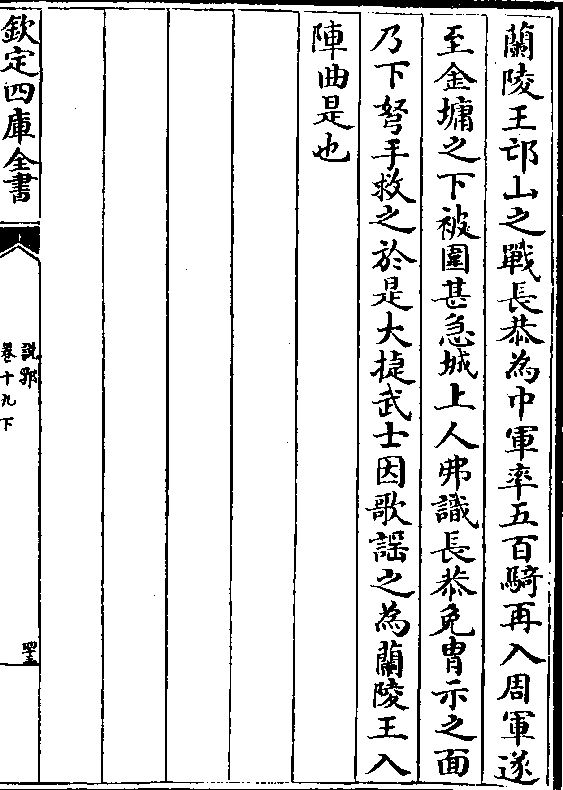 蘭陵王邙山之戰長恭為中軍率五百騎再入周軍遂
至金墉之下被圍甚急城上人弗識長恭免胄示之面
乃下弩手救之於是大捷武士因歌謡之為蘭陵王入
陣曲是也
欽定四庫全書
說郛
卷十九下